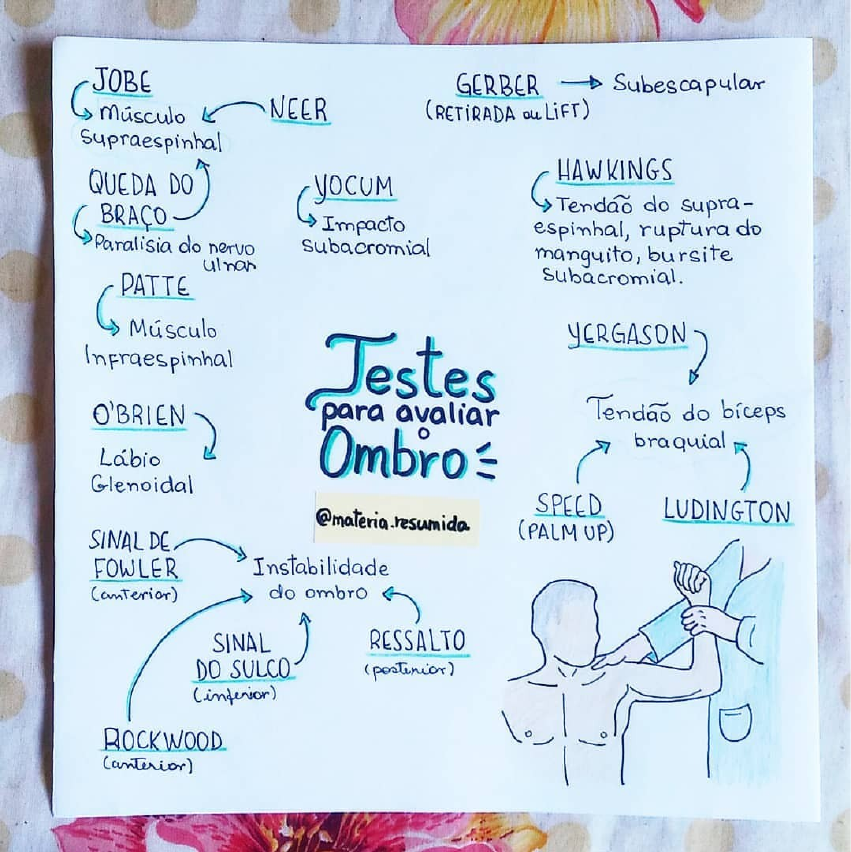 JOBE
Músculo
Supraespinhal
NEER
GERBER
(RETIRADA ou LIFT)
Subescapular
QUEDA DO
BRAÇO
Paralisia do nervo
ulnar
YOCUM
Impacto
subacromial
HAWKINGS
Tendão do supra-
espinhal, ruptura do
manguito, bursite
subacromial.
PATTE
Músculo
Infraespinhal
YERGASON
Tendão do bíceps
braquial
Testes
para avaliar
o
Ombro
@materia.resumida
O'BRIEN
Lábio
Glenoidal
SPEED
(PALM UP)
LUDINGTON
SINAL DE
FOWLER
(anterior)
Instabilidade
do ombro
SINAL
DO SULCO
(inferior)
RESSALTO
(posterior)
ROCKWOOD
(anterior)